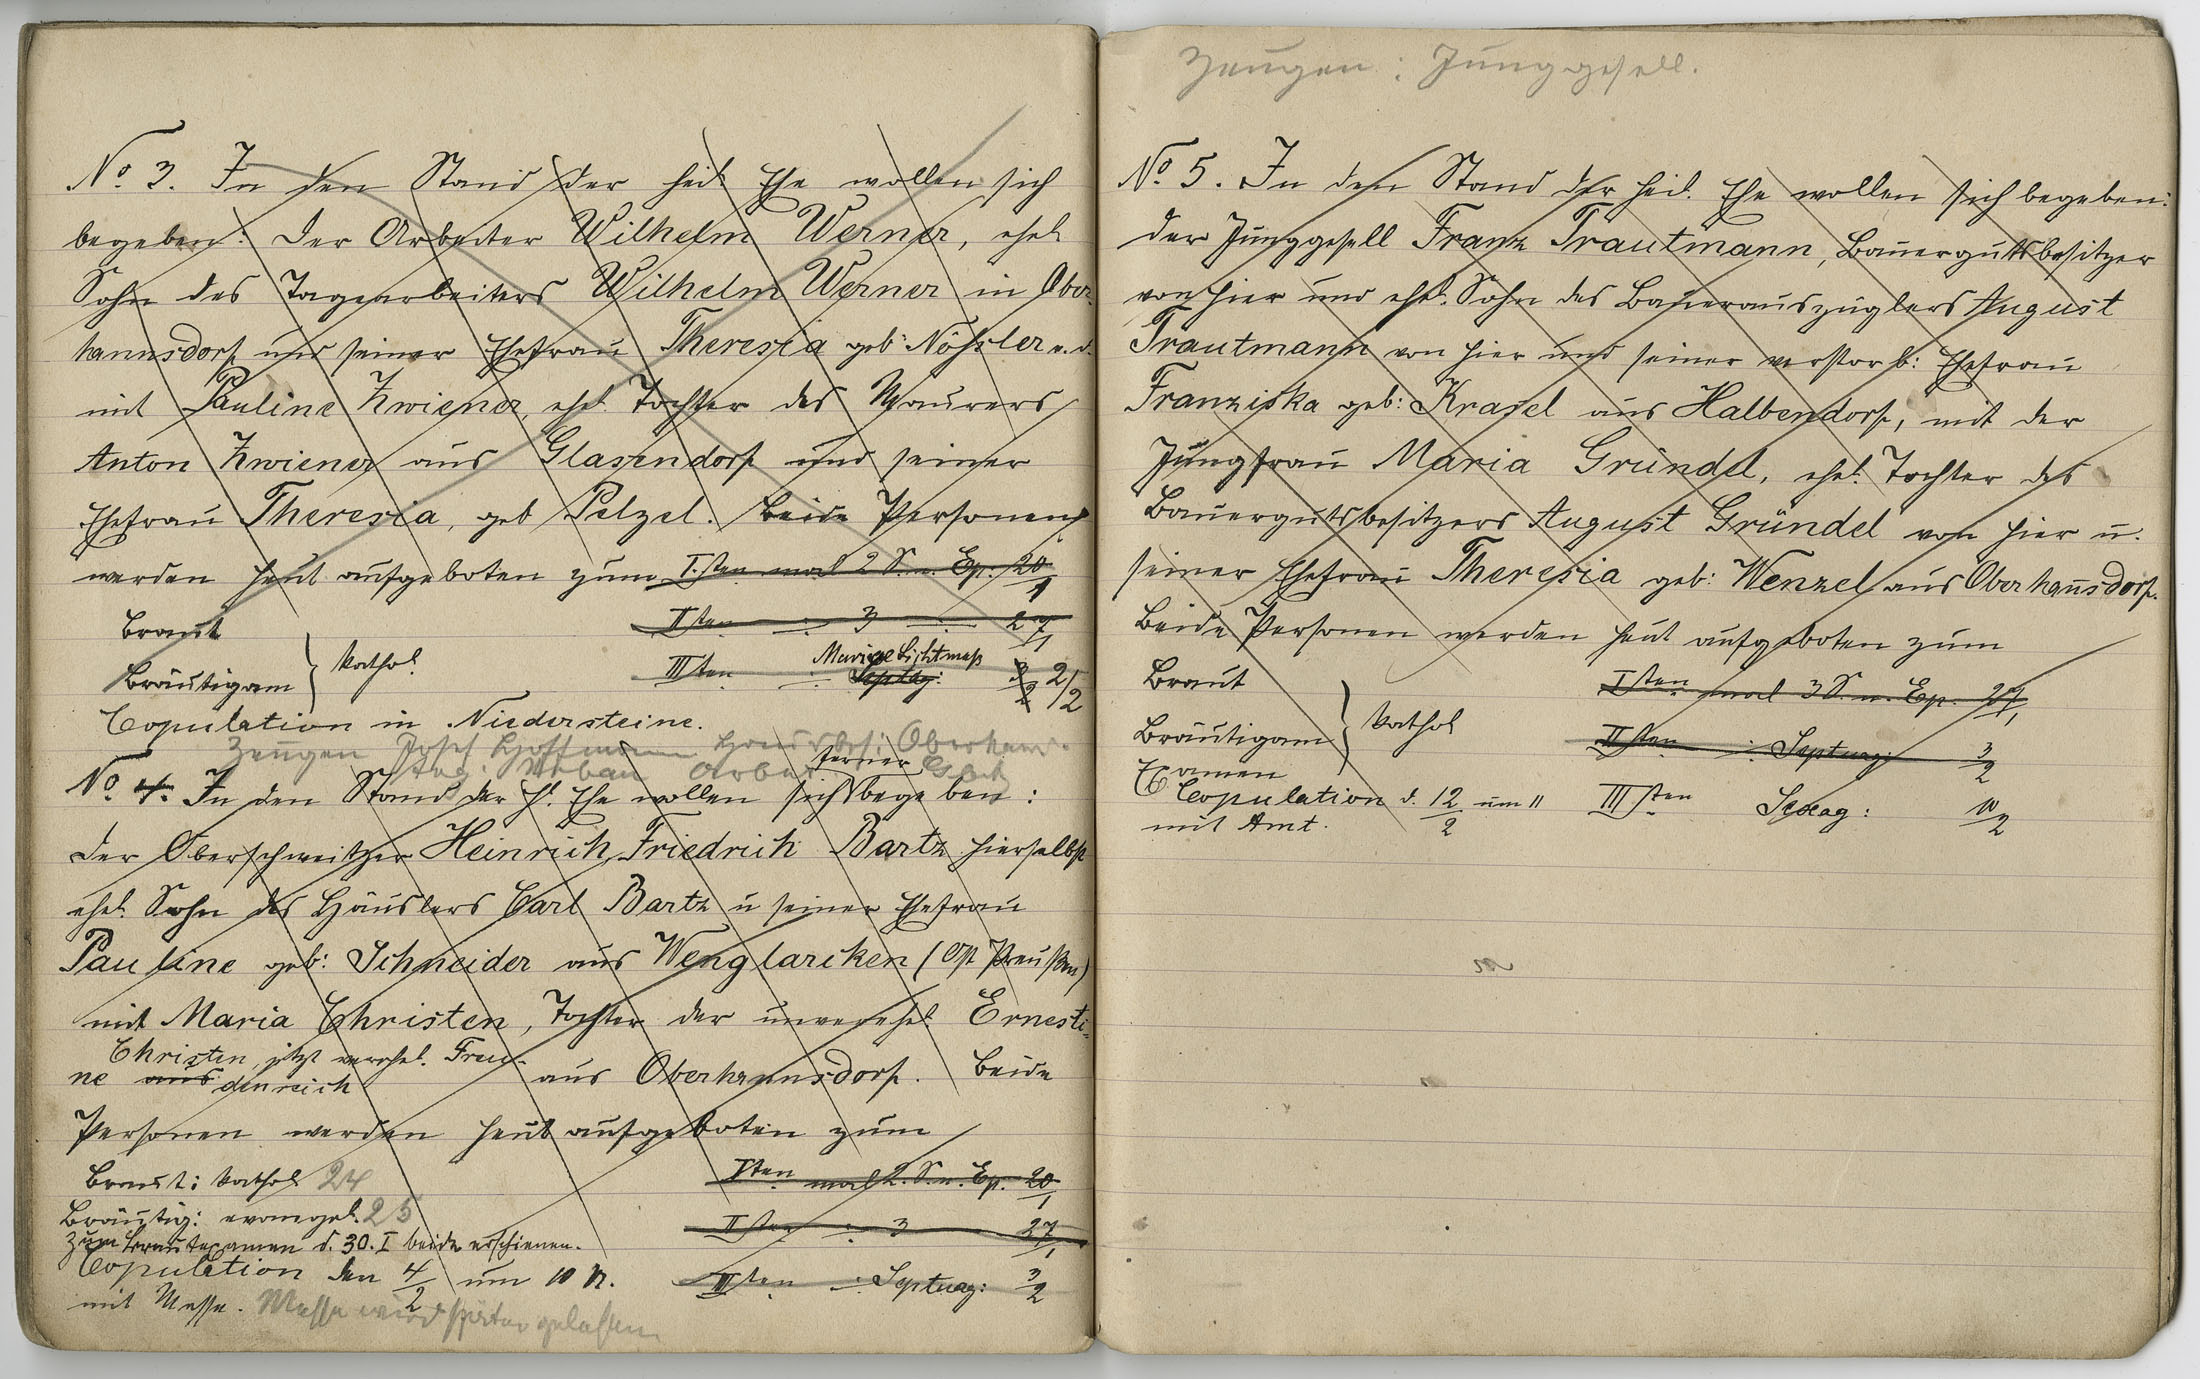 No. 3. In den Stand der heil. Ehe wollen sich
begeben: Der Arbeiter Wilhelm Werner, ehel.
Sohn des Tagearbeiters Wilhelm Werner in Ober-
hannsdorf und seiner Ehefrau Theresia geb: Nößler u. d.
mit Pauline Zwiener, ehel. Tochter des Maurers
Anton Zwiener aus Glasendorf und seiner
Ehefrau Theresia, geb Pelzel. Beide Personen
werden heut aufgeboten zum I.sten mal 2 S. n. Ep. 20/1
IIsten -:- 3 -:- 27/1
Braut
Bräutigam } kathol.
IIIsten -:- Septag: Mariae Lichtmeß 3/2 2/2
Copulation in Niedersteine.
Zeugen Josef Hoffmann Hausbes: Oberhann.
Aug. Urban Arbei
No. 4. In den Stand der hl. Ehe wollen sich ferner begeben:
der Oberschweitzer Heinrich Friedrich Bartz hierselbst
ehel. Sohn des Häuslers Carl Bartz u seiner Ehefrau
Pauline geb: Schneider aus Wenglarcken (Ost Preußen)
mit Maria Christen, Tochter der unverehel. Ernesti-
Christen jetzt verehel. Freu-
ne aus denreich aus Oberhannsdorf. Beide
Personen werden heut aufgeboten zum
Braut: kathol. 24
Isten mal 2. S. n. Ep. 20/1
Bräutig: evangel. 25
IIsten -:- 3 27/1
Zum Brautexamen d. 30. I beide erschienen.
Copulation den 4/2 um 10 U.
IIIsten -:- Septuag: 3/2
mit Messe. Messe wird später gelesen
Zeugen: Junggesell.
No. 5. In den Stand der heil. Ehe wollen sich begeben:
der Junggesell Franz Trautmann, Bauergutsbesitzer
von hier und ehel. Sohn des Bauerauszüglers August
Trautmann von hier und seiner verstorb: Ehefrau
Franziska geb: Krasel aus Halbendorf, mit der
Jungfrau Maria Gründel, ehel. Tochter des
Bauergutsbesitzers August Gründel von hier u.
seiner Ehefrau Theresia geb: Wenzel aus Oberhannsdorf.
Beide Personen werden heut aufgeboten zum
Braut
Isten mal 3 S. n. Ep. 27/1
Bräutigam } kathol
IIsten -:- Septuag: 3/2
Examen
Copulation d. 12/2 um 11
IIIsten Sexag: 10/2
mit Amt.